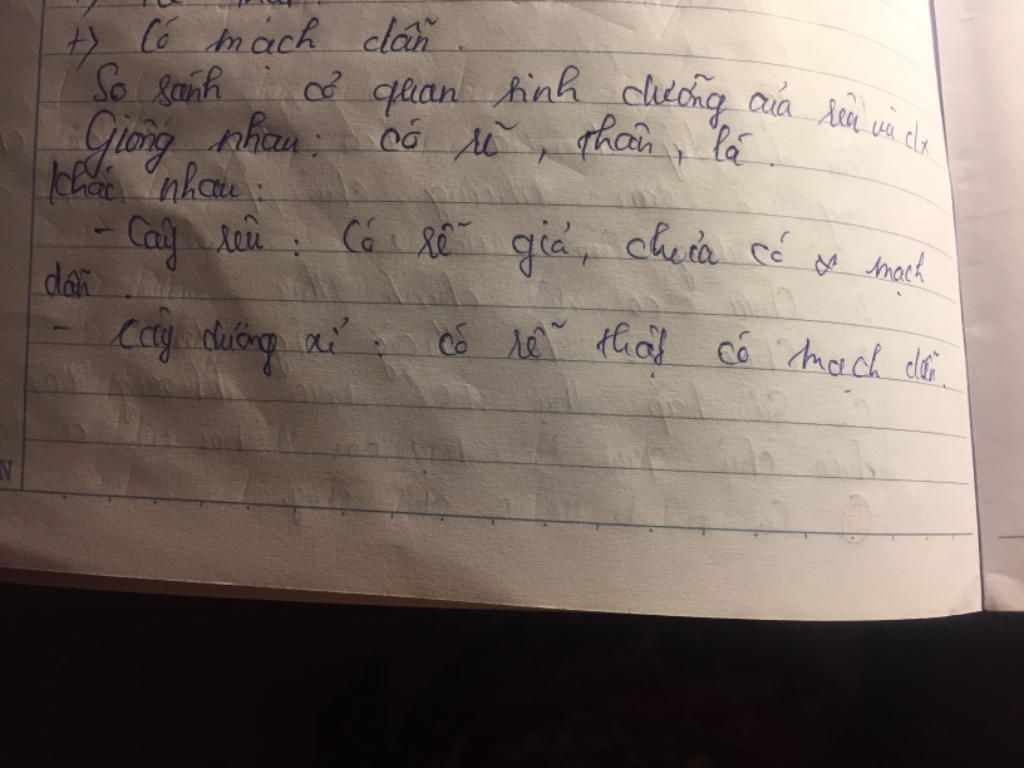 +) Có mạch dẫn.
So sánh cơ quan sinh dưỡng của rêu và dx
Giống nhau: có rễ, thân, lá.
khác nhau:
- Cây rêu: Có rễ giả, chưa có mạch
dẫn.
- Cây dương xỉ: có rễ thật có mạch dẫn.
N